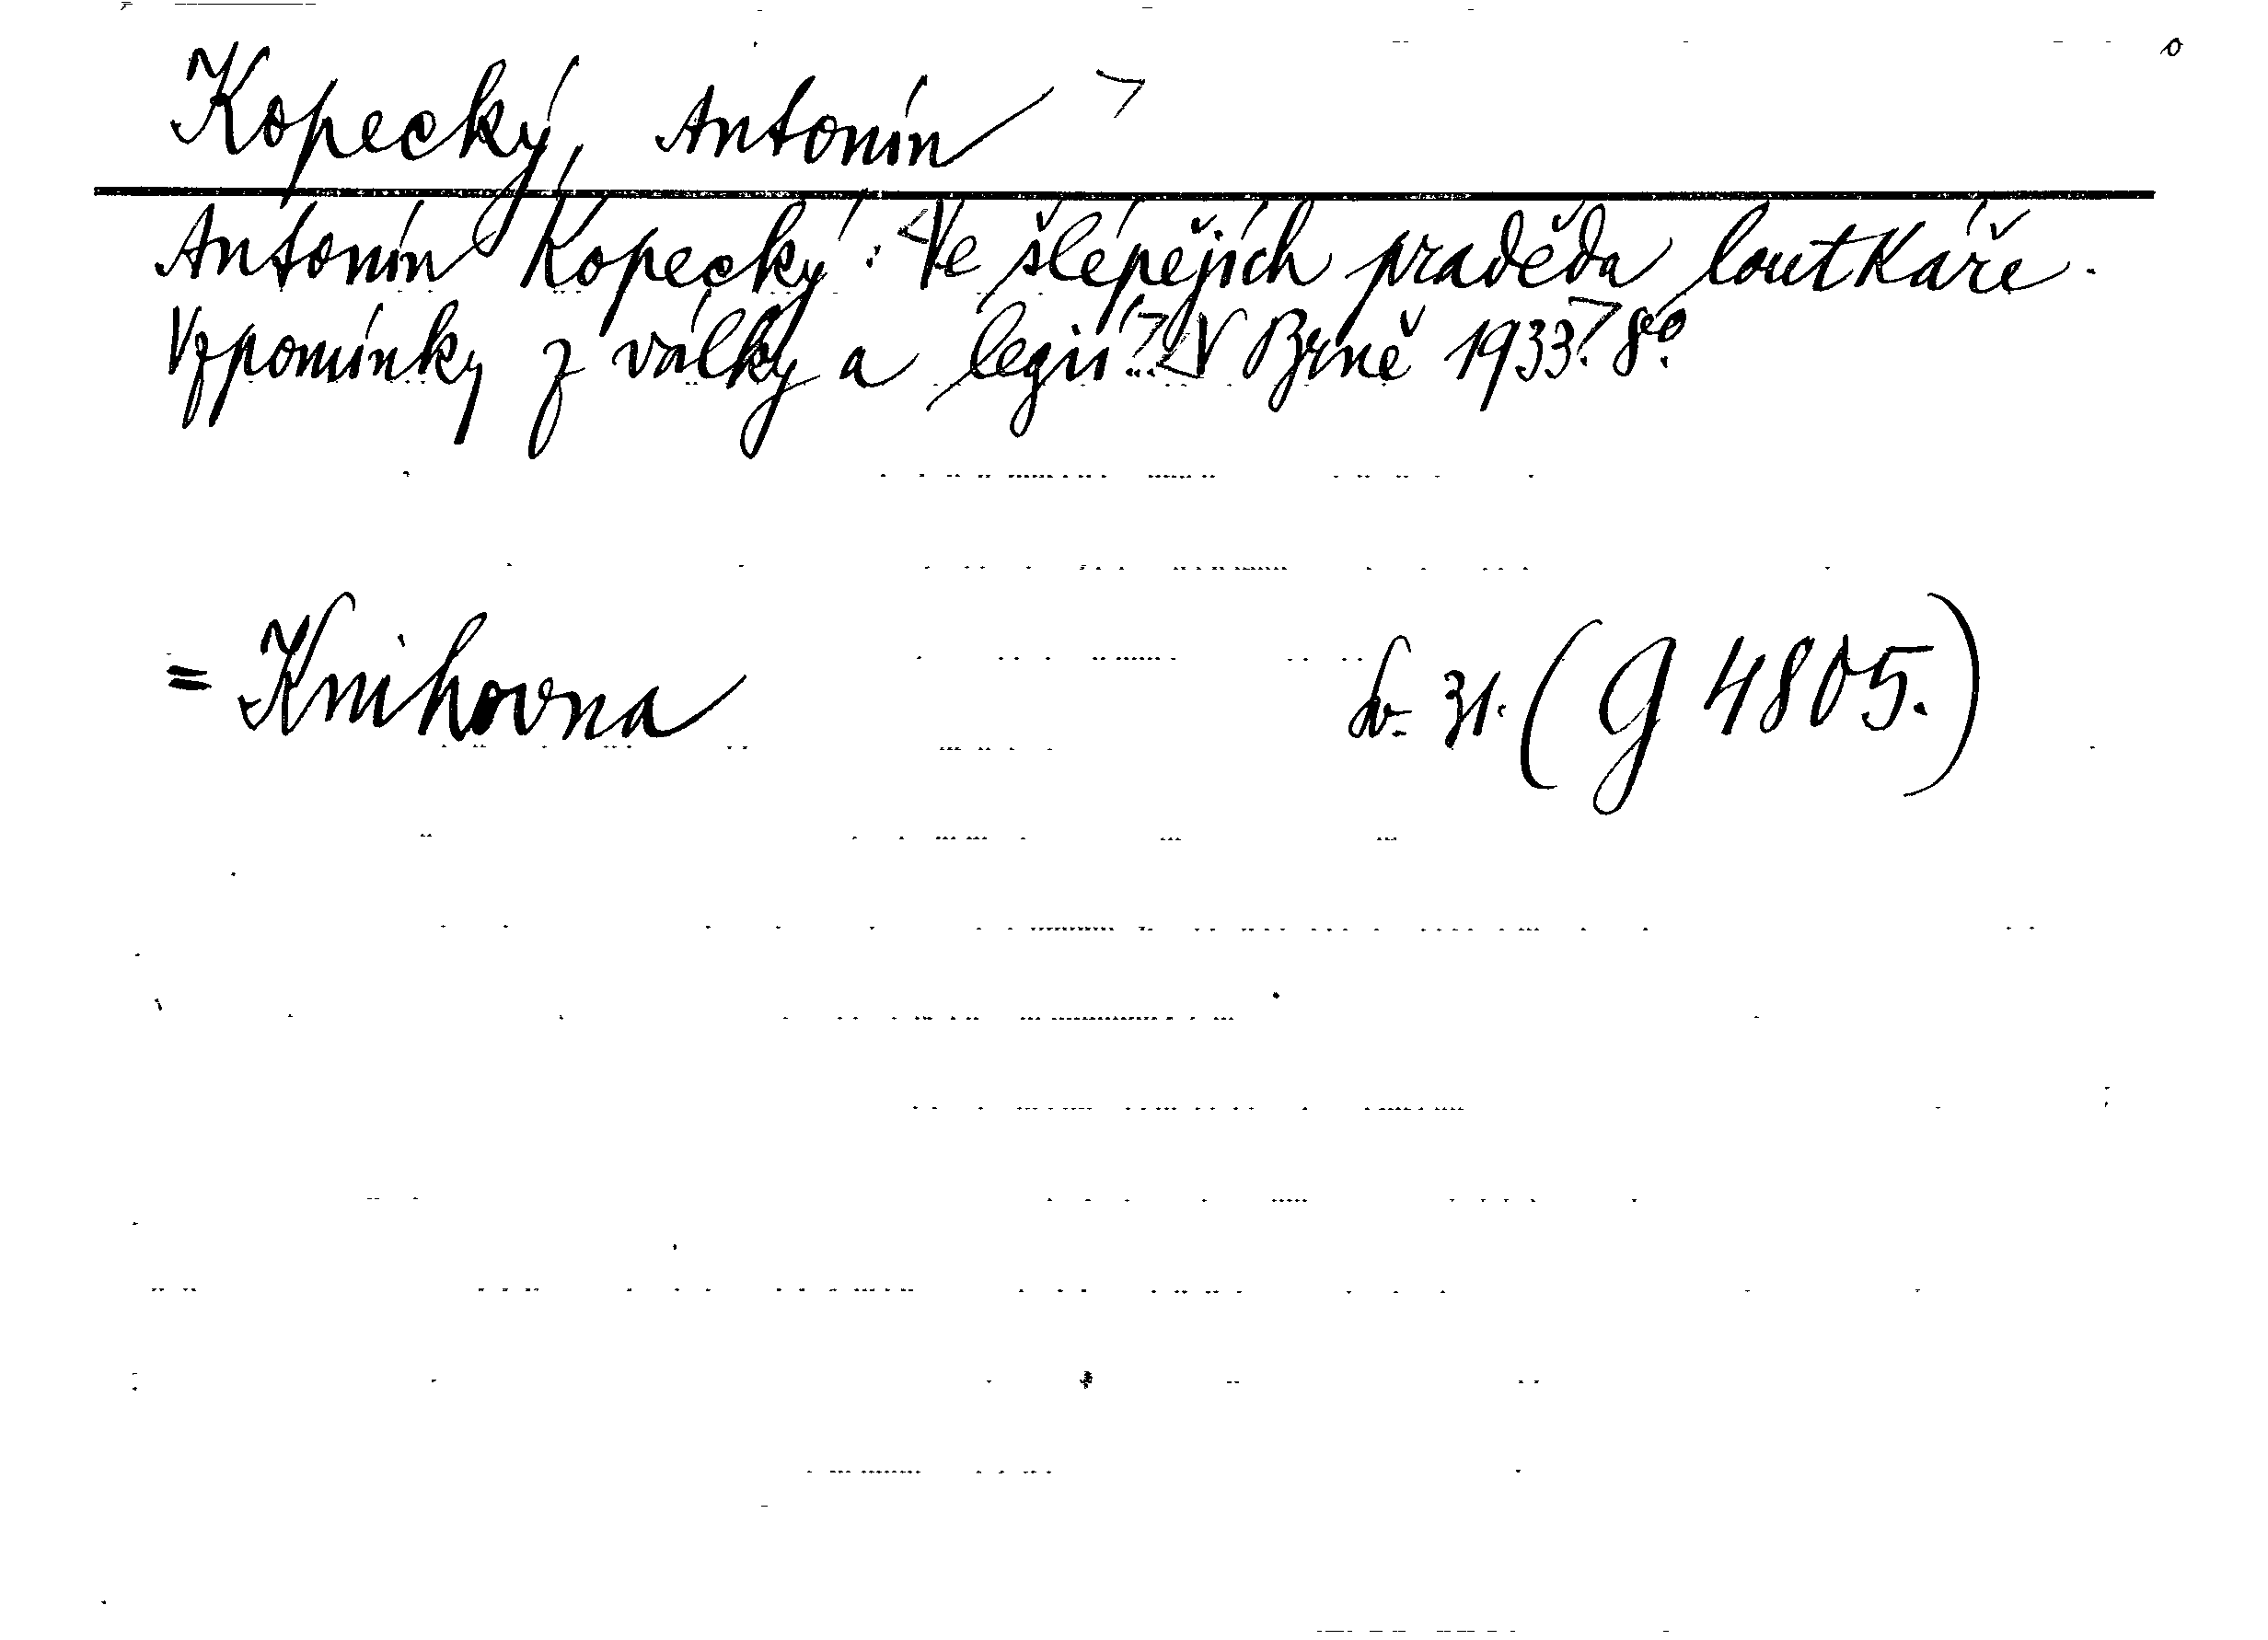 Kopecký, Antonín
Antonín Kopecký: Ve šlépějích praděda loutkáře.
Vzpomínky z války a legií. V Brně 1933. 8°.
= Knihovna sv. 31. (G 4805.)